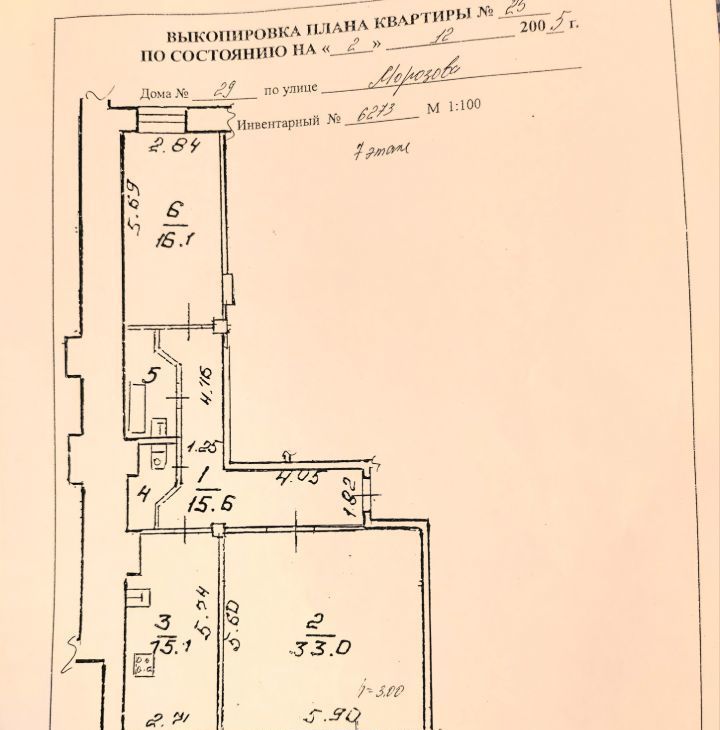 ВЫКОПИРОВКА ПЛАНА КВАРТИРЫ № 25
ПО СОСТОЯНИЮ НА « 2 » 12 2005 г.
Дома № 29 по улице Морозова
Инвентарный № 6273 М 1:100
7 этаж
2.84
5.69
6
16.1
5
4.76
1.25
4.05
1
15.6
1.82
4
3
15.1
5.74
5.60
2
33.0
h=3.00
2.71
5.90